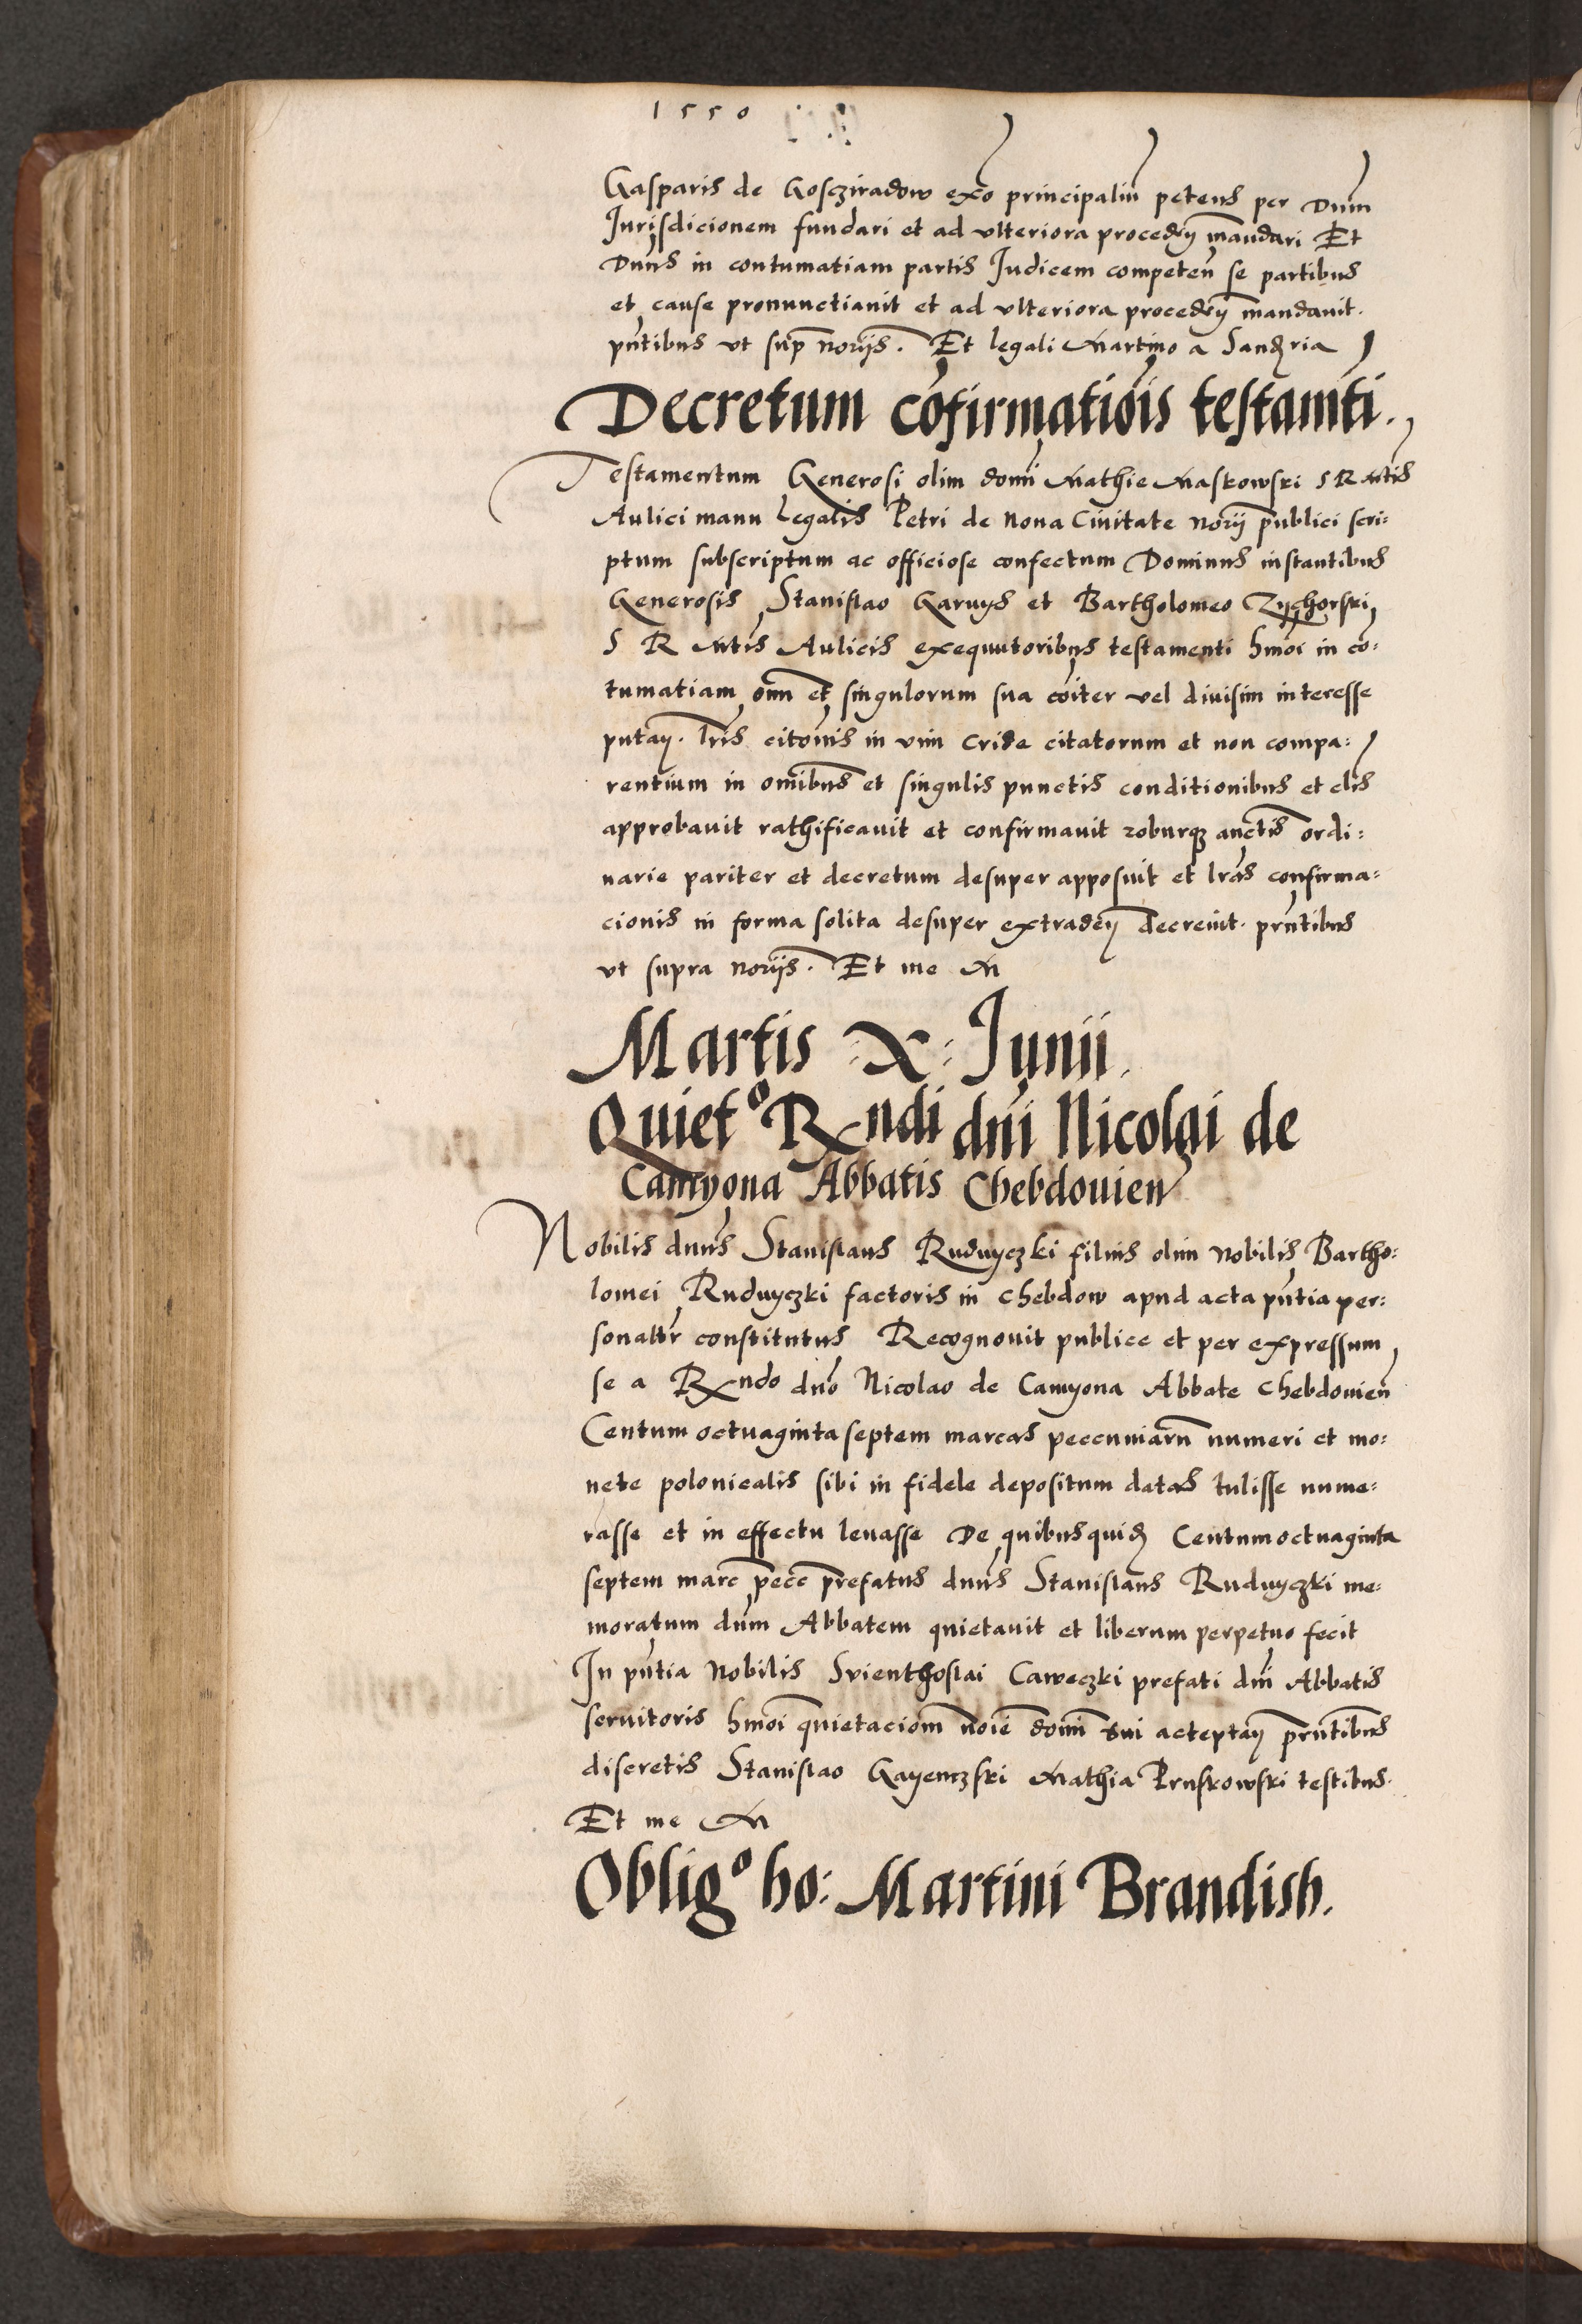 1550
Gasparis de Goscziradow exõ principaliũ petens per Dnm̃
Jurisdicionem fundari et ad vlteriora procedẽn mandari Et
Dnns in contumatiam partis Judicem competeñ se partibus
et cause pronunctiauit et ad vlteriora procedẽn mandauit.
pñtibus vt sup̃ norijs. Et legali Martino a Sandria
Decretum cõfirmatiõis testamti.
Testamentum Generosi olim domi Mathie Maskowski S R Mtis
Aulici manu legalis Petri de Noua Ciuitate norij publici scri:
ptum subscriptum ac officiose confectum Dominus instantibus
Generosis Stanislao Garnys et Bartholomeo Zychorski
S R Mtis Aulicis exequutoribus testamenti hmõi in cõ:
tumatiam om̃ et singulorum sua cõiter vel diuisim interesse
putañ. lr̃is citõnis in vim cride citatorum et non compa:
rentium in om̃ibus et singulis punctis conditionibus et clis
approbauit rathificauit et confirmauit roburq; auctis ordi:
narie pariter et decretum desuper apposuit et lr̃as confirma:
cionis in forma solita desuper extradeñ decreuit. prñtibus
vt supra norijs. Et me M
Martis :X: Junii.
Quietº Rndi dñi Nicolai de
Camyona Abbatis Chebdouien
Nobilis dnũs Stanislaus Rudnyczki filius olim Nobilis Bartho:
lomei Rudnyczki factoris in Chebdow apud acta pñtia per:
sonaltr̃ constitutus Recognouit publice et per expressum
se a Rndo dnõ Nicolao de Camyona Abbate Chebdouieñ
Centum octuaginta septem marcas peccuniarũ numeri et mo:
nete polonicalis sibi in fidele depositum datas tulisse nume:
rasse et in effectu leuasse De quibusquid Centum octuaginta
septem marc̃ pecc̃ prefatus dnũs Stanislaus Rudnyczki me:
moratum dũm Abbatem quietauit et liberum perpetuo fecit
In pñtia Nobilis Svienthoslai Caweczki prefati dñi Abbatis
seruitoris hmõi quietaciom̃ noĩe domĩ sui acteptañ prñtibus
discretis Stanislao Gayenczski Mathia Pruskowski testibus.
Et me M
Obligº ho: Martini Brandish.